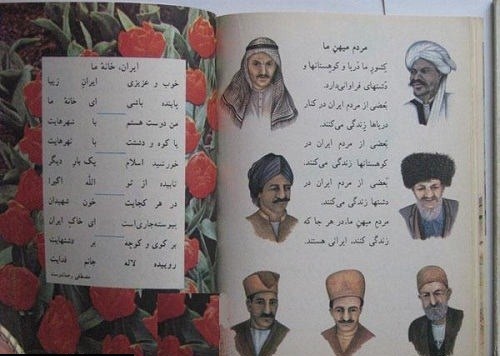 مردم میهنِ ما
کشورِ ما دریا و کوهستانها و
دشتهای فراوانی‌دارد.
بعضی از مردم ایران در کنار
دریاها زندگی می‌کنند.
بعضی از مردم ایران در
کوهستانها زندگی می‌کنند.
بعضی از مردم ایران در
دشتها زندگی می‌کنند.
مردم میهنِ ما، در هر جا که
زندگی کنند، ایرانی هستند.
ایران، خانهٔ ما
خوب و عزیزی ایرانِ زیبا
پاینده باشی ای خانهٔ ما
من دوست هستم با شهرهایت
با کوه و دشتت با نهرهایت
خورشید اسلام یک بار دیگر
تابیده از تو الله اکبر!
در هر کجایت خون شهیدان
پیوسته‌جاری‌است ای خاک ایران
بر کوی و کوچه بر دشتهایت
روییده لاله جانم فدایت
مصطفی رحماندوست